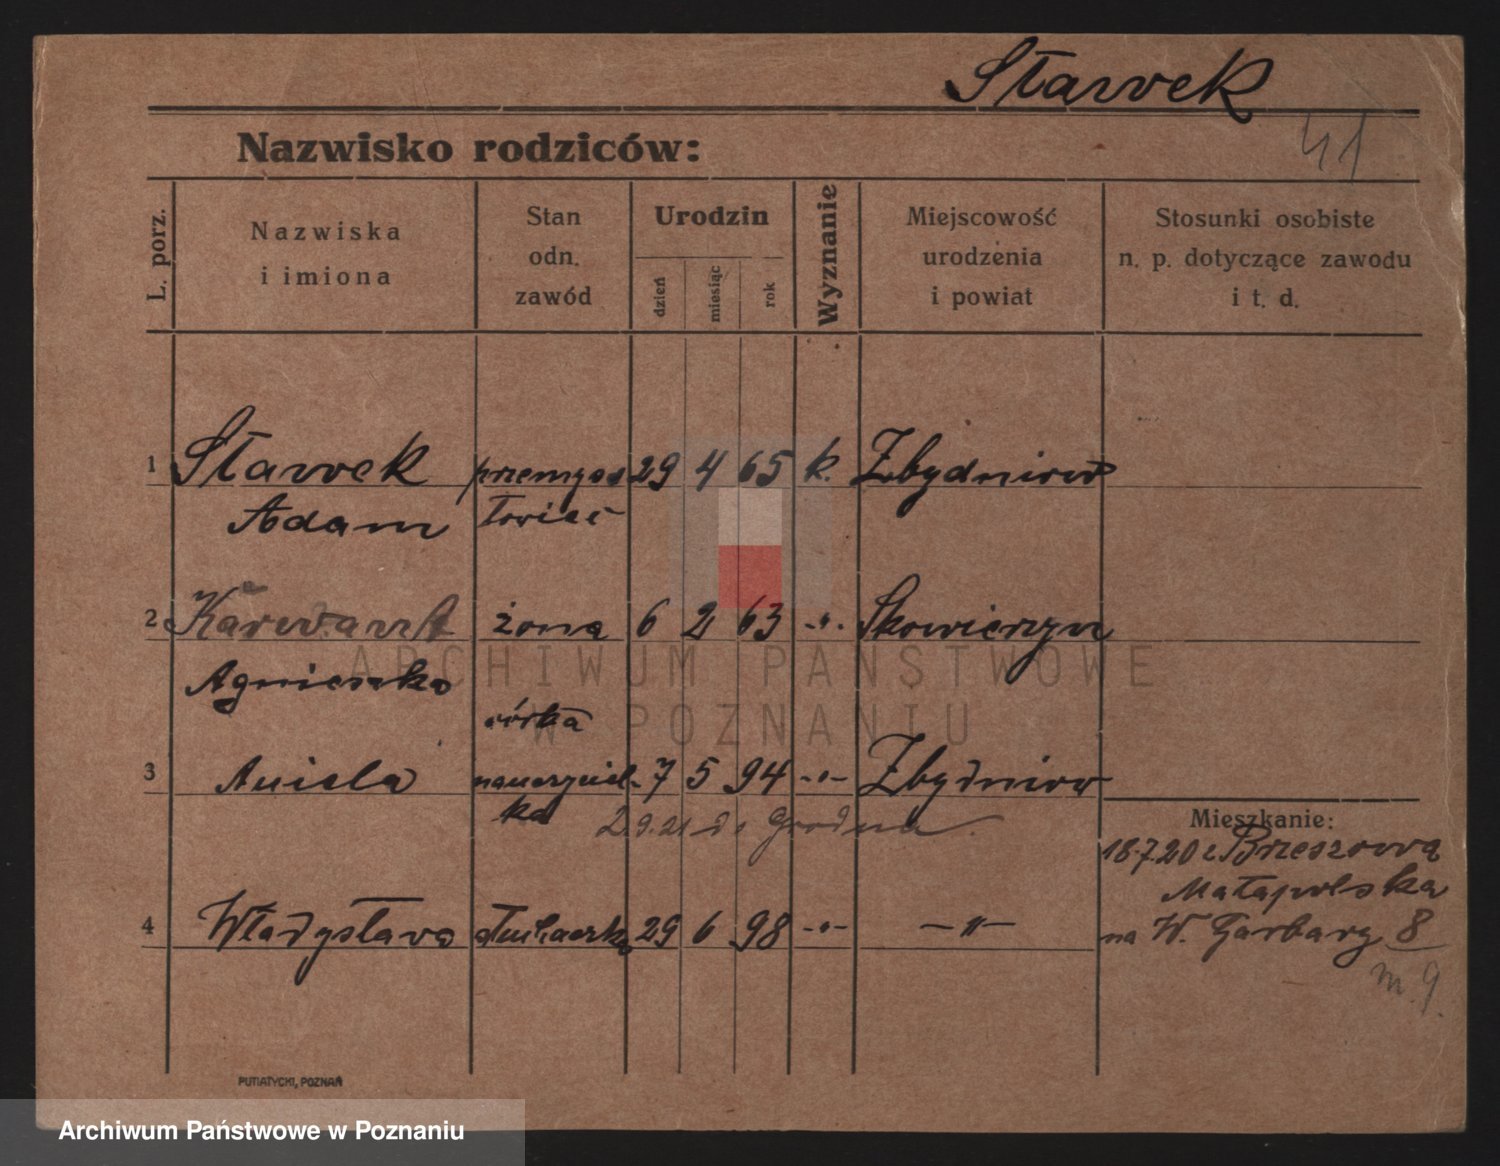 Sławek
41
Nazwisko rodziców:
L. porz.
Nazwiska
i imiona
Stan
odn.
zawód
Urodzin
dzień
miesiąc
rok
Wyznanie
Miejscowość
urodzenia
i powiat
Stosunki osobiste
n. p. dotyczące zawodu
i t. d.
1 Sławek przemysł 29 4 65 k. Zbydniow
Adam
2 żona 6 2 63 -"- Skowierzyn
Agnieszka
córka
3 Aniela nauczyciel- 7 5 94 -"- Zbydniow
ka 2.9.21 do Grodna.
Mieszkanie:
18.7.20 z Brzeszowa
Małopolska
4 Władysława słuchaczka 29 6 98 -"- -"- na W. Garbary 8
m. 9.
PUTIATYCKI, POZNAŃ
ARCHIWUM PAŃSTWOWE
W POZNANIU
Archiwum Państwowe w Poznaniu